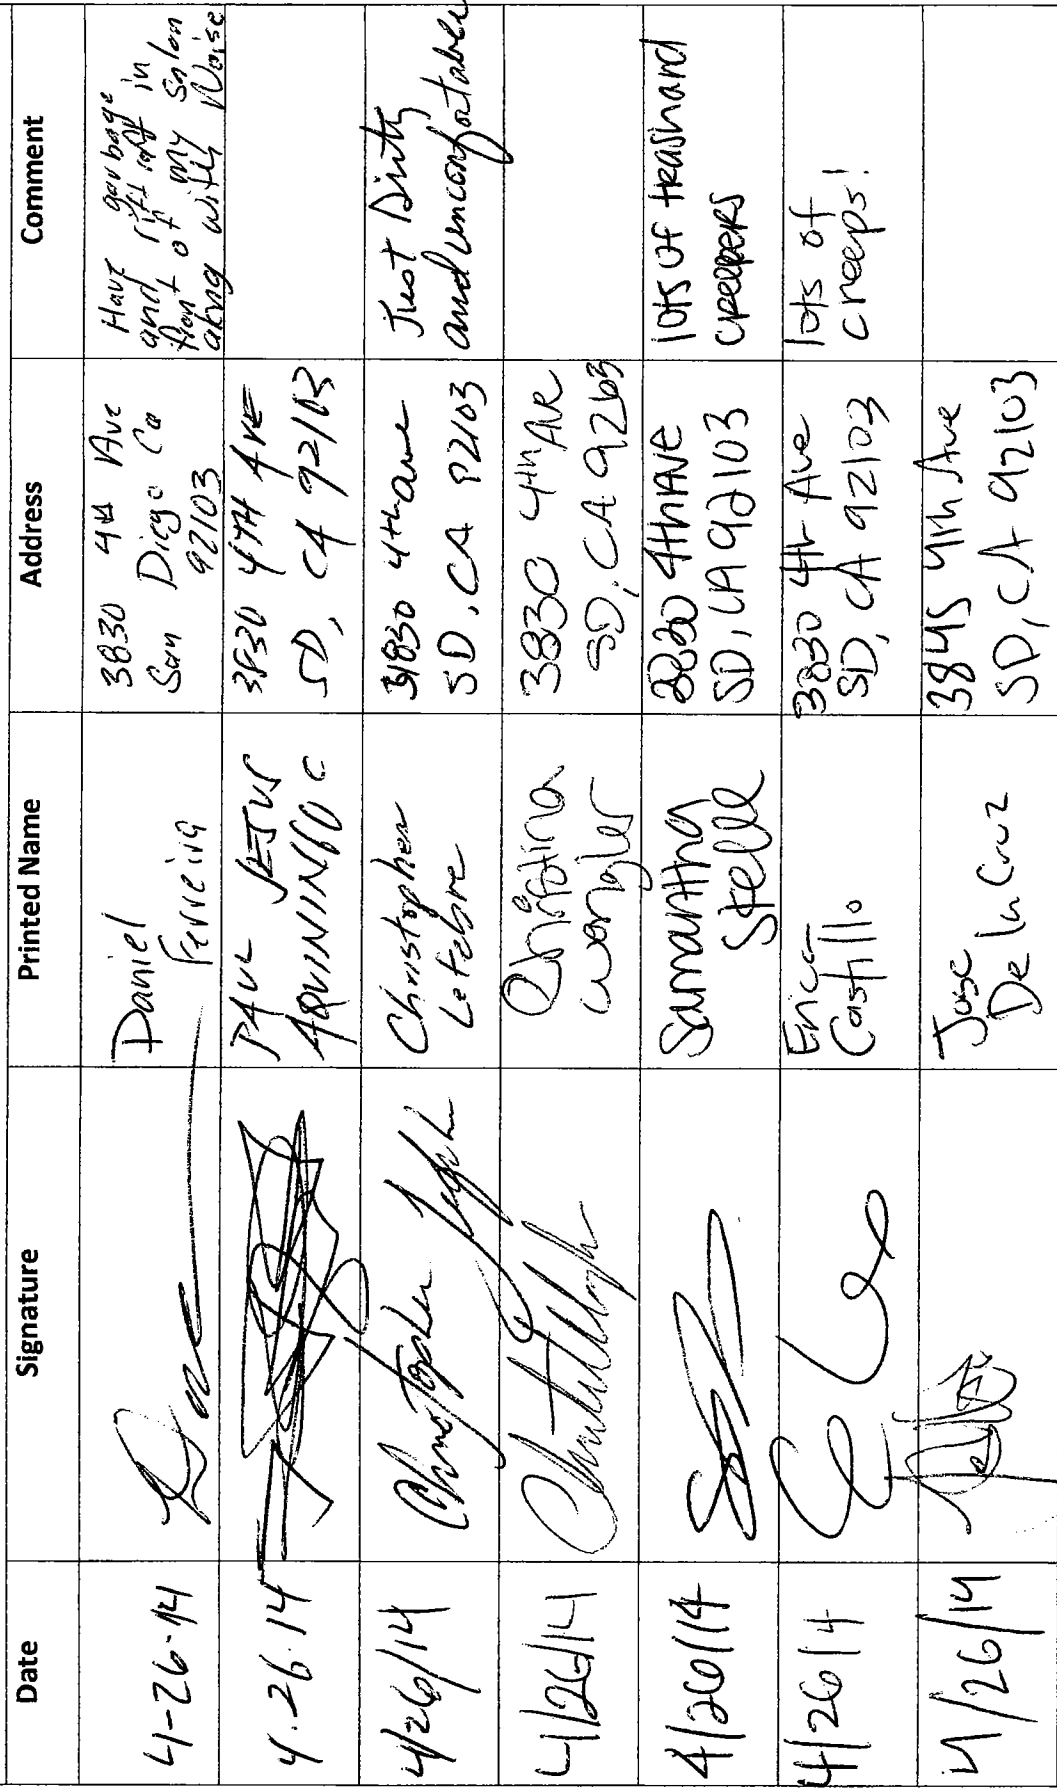 Date Signature Printed Name Address Comment
4-26-14 Daniel Ferreira 3830 4th Ave
San Diego Ca
92103 Have garbage
and riff raff in
front of my Salon
along with Noise
4.26.14 PAUL JESUS 3830 4TH AVE
SD, CA 92103
4/26/14 Christopher
Lefebre 3830 4th ave
SD, CA 92103 Just Dirty
and uncomfortable
4/26/14 Christina
Wengler 3830 4th AVE
SD, CA 92103
4/26/14 Samantha
Stelle 3830 4th AVE
SD, CA 92103 lots of trash and
creepers
4/26/14 Erica
Castillo 3830 4th Ave
SD, CA 92103 lots of
creeps!
4/26/14 Jose
De la Cruz 3845 4th Ave
SD, CA 92103